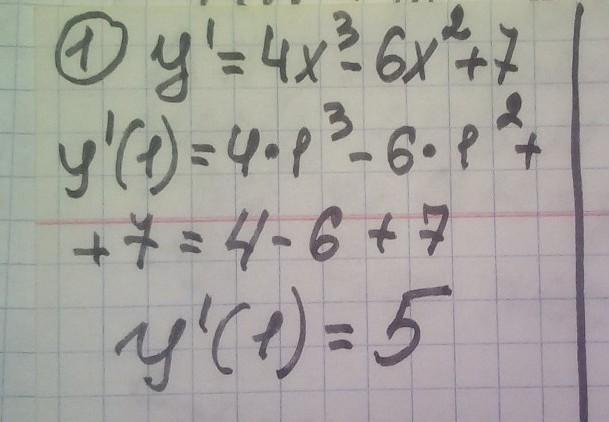 ① y' = 4x³ - 6x² + 7
y'(1) = 4·1³ - 6·1² +
+ 7 = 4 - 6 + 7
y'(1) = 5